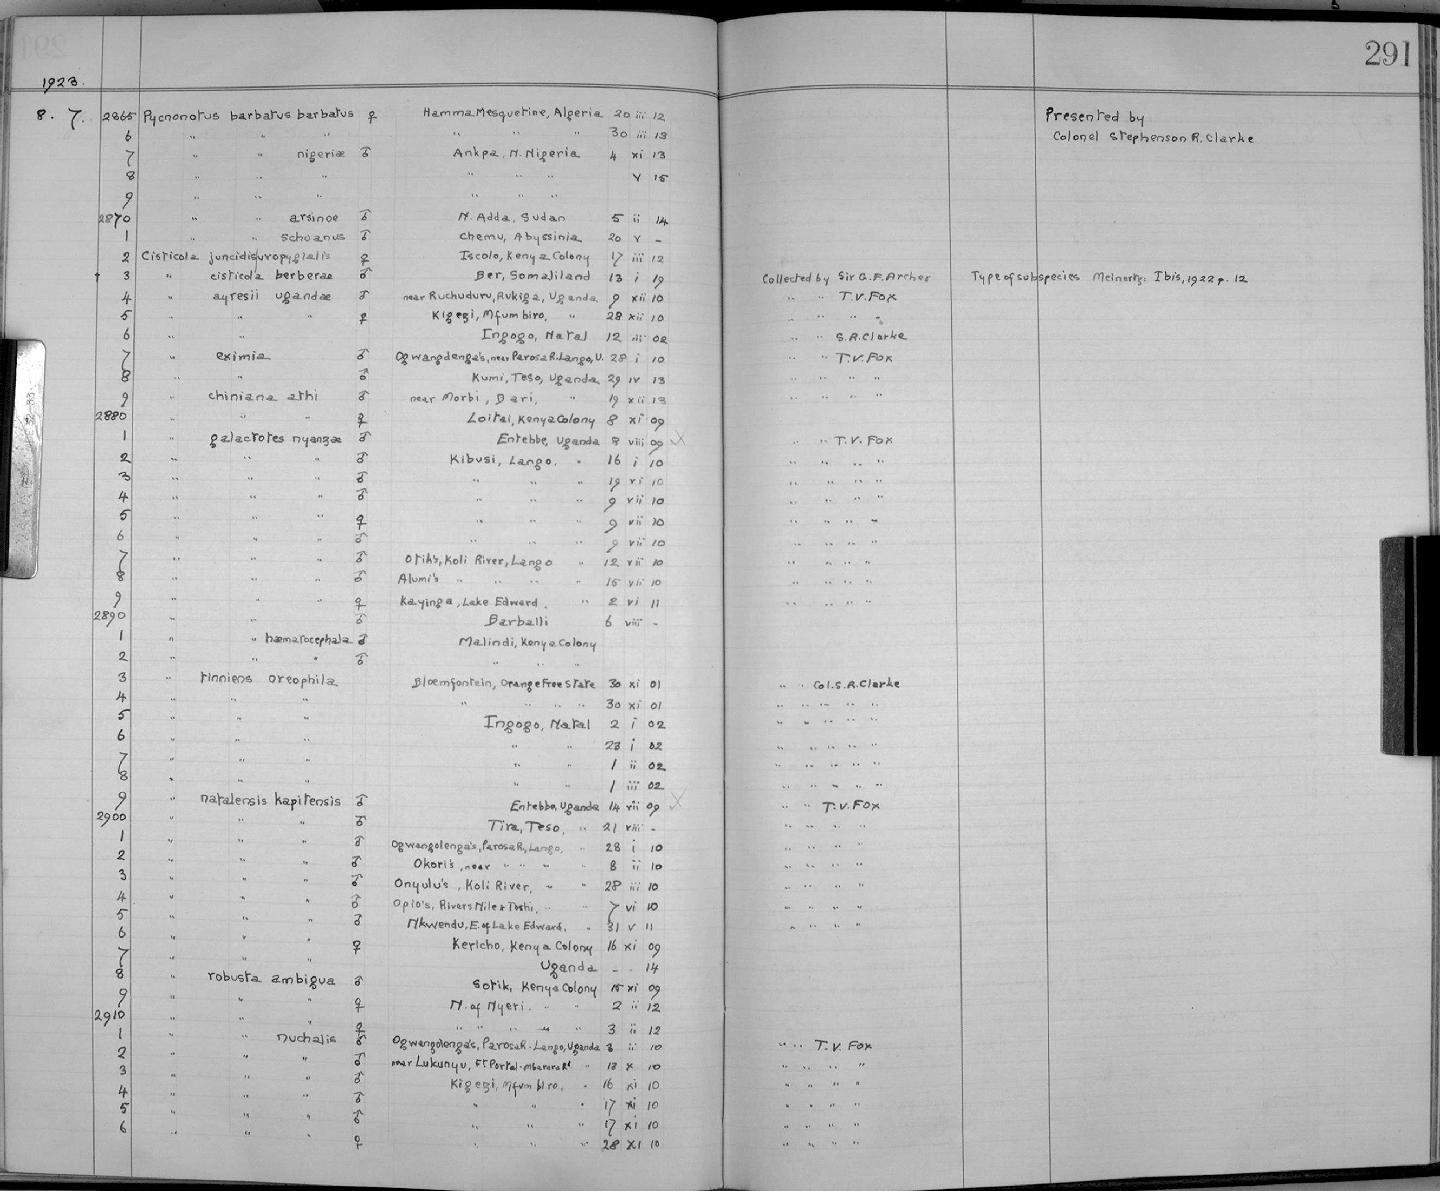 291
1923.
8. 7. 2865 Pycnonotus barbatus barbatus ♀ Hamma Mesquetine, Algeria 20 iii 12 Presented by
6 " " " " " " 30 iii 13 Colonel Stephenson R. Clarke
7 " " nigeriæ ♂ Ankpa, N. Nigeria 4 xi 13
8 " " " " " " v 15
9 " " " " " "
2870 " " arsinoe ♂ N. Adda, Sudan 5 ii 14
1 " " schoanus ♂ Chemu, Abyssinia 20 v -
2 Cisticola juncidis uropygialis ♀ Iscolo, Kenya Colony 17 iii 12
† 3 " cisticola berberae ♂ Ber, Somaliland 13 i 19 Collected by Sir G. F. Archer Type of subspecies Meinertz: Ibis, 1922 p. 12
4 " ayresii ugandæ ♂ near Ruchuduru, Rukiga, Uganda 9 xii 10 " " T. V. Fox
5 " " " ♀ Kigezi, Mfumbiro, " 28 xii 10 " " "
6 " " Ingogo, Natal 12 iii 02 " " S. R. Clarke
7 " eximia ♂ Ogwangdenga's, near Parosa R. Lango, U. 28 i 10 " " T. V. Fox
8 " " ♂ Kumi, Teso, Uganda 29 iv 13 " " " "
9 " chiniana athi ♂ near Morbi, Dari, " 19 xii 13 " " " "
2880 " " " ♀ Loitai, Kenya Colony 8 xi 09
1 " galactotes nyanzæ ♂ Entebbe, Uganda 8 viii 09 " " T. V. Fox
2 " " " ♂ Kibusi, Lango, " 16 i 10 " " " "
3 " " " ♂ " " " 19 vi 10 " " " "
4 " " " ♂ " " " 9 vii 10 " " " "
5 " " " ♀ " " " 9 vii 10 " " " "
6 " " " ♂ " " " 9 vii 10 " " " "
7 " " " ♂ Otik's, Koli River, Lango " 12 vii 10 " " " "
8 " " " ♂ Alumi's " " " " 15 vii 10 " " " "
9 " " " ♀ Kayinga, Lake Edward, " 2 vi 11 " " " "
2890 " " " ♂ Barballi 6 viii -
1 " " hæmatocephala ♂ Malindi, Kenya Colony
2 " " " ♂ " " "
3 " tinniens oreophila Bloemfontein, Orange Free State 30 xi 01 " " Col. S. R. Clarke
4 " " " " " " " 30 xi 01 " " " " "
5 " " " Ingogo, Natal 2 i 02 " " " " "
6 " " " " " 23 i 02 " " " " "
7 " " " " " 1 ii 02 " " " " "
8 " " " " " 1 iii 02 " " " " "
9 " natalensis kapitensis ♂ Entebbe, Uganda 14 vii 09 " " T. V. Fox
2900 " " " ♂ Tira, Teso, " 21 viii - " " " "
1 " " " ♂ Ogwangolenga's, Parosa R., Lango, " 28 i 10 " " " "
2 " " " ♂ Okori's, near " " " " 8 ii 10 " " " "
3 " " " ♂ Onyulu's, Koli River, " " 28 iii 10 " " " "
4 " " " ♂ Opio's, Rivers Nile & Toshi, " " 7 vi 10 " " " "
5 " " " ♂ Nkwendu, E. of Lake Edward, " 31 v 11 " " " "
6 " " " ♀ Kericho, Kenya Colony 16 xi 09
7 " " " Uganda - - 14
8 " robusta ambigua ♂ Sotik, Kenya Colony 15 xi 09
9 " " " ♀ N. of Nyeri. " " 2 ii 12
2910 " " " ♀ " " " " " 3 ii 12
1 " " nuchalis ♂ Ogwangolenga's, Parosa R. Lango, Uganda 3 ii 10 " " T. V. Fox
2 " " " ♂ near Lukunyu, Ft Portal - Mbarara Rd " 13 x 10 " " " "
3 " " " ♂ Kigezi, Mfumbiro, " 16 xi 10 " " " "
4 " " " ♂ " " " 17 xi 10 " " " "
5 " " " ♂ " " " 17 xi 10 " " " "
6 " " " ♀ " " " 28 xi 10 " " " "